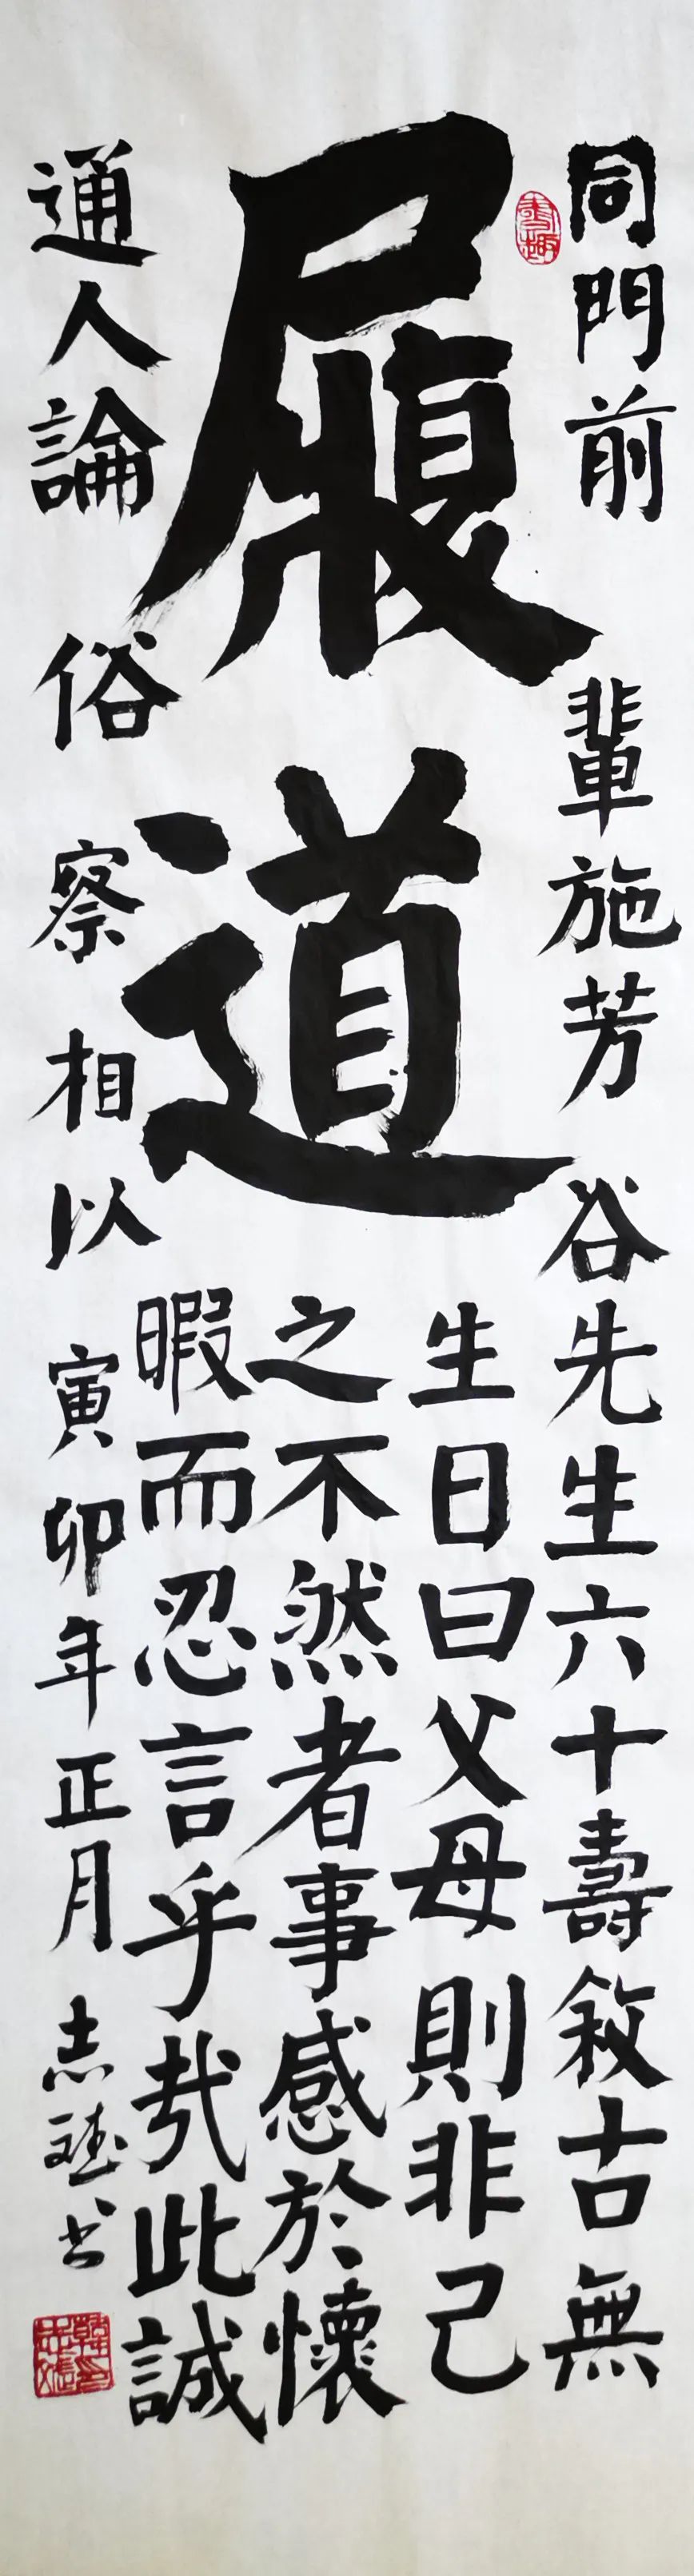 履道
同門前輩施芳谷先生六十壽敘古無
生日曰父母則非己
之不然者事感於懷
暇而忍言乎哉此誠
通人論俗察相以
寅卯年正月志斌书
書趣